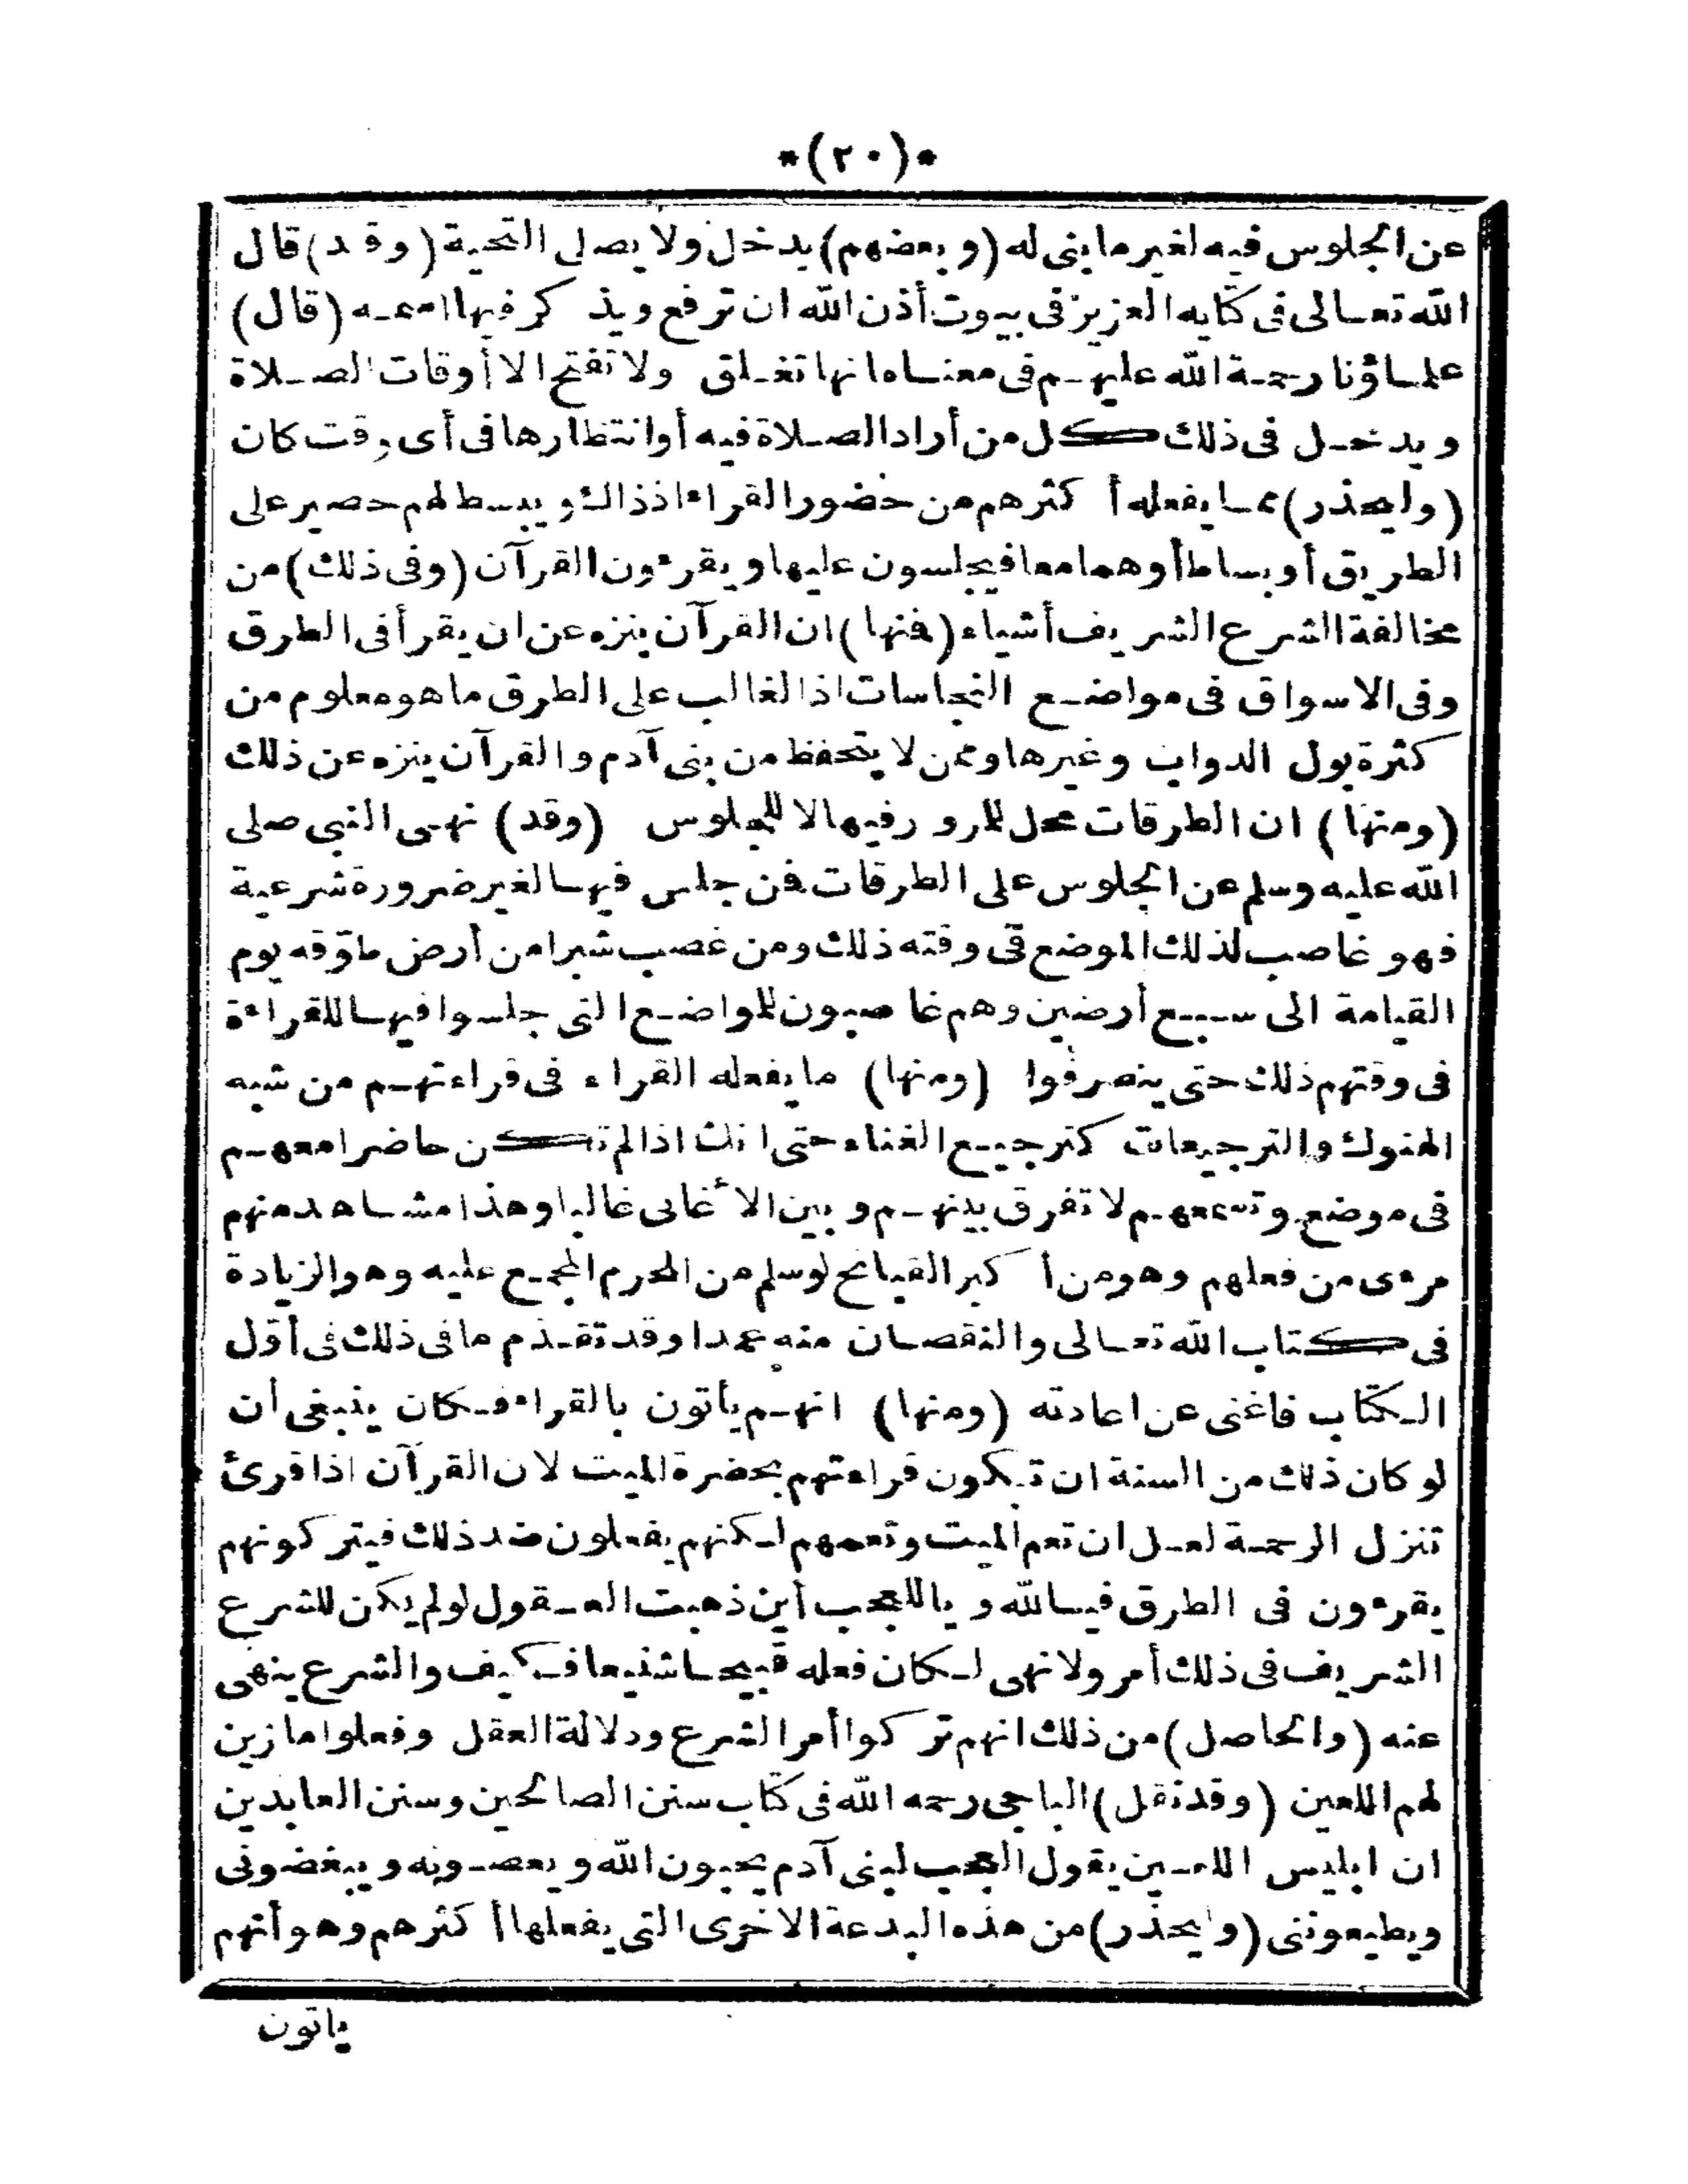 *(٢٠)*
عن الجلوس فيه لغير ما بنى له (وبعضهم) يدخل ولا يصلى التحية (وقد) قال
الله تعالى فى كتابه العزيز فى بيوت أذن الله ان ترفع ويذكر فيها اسمه (قال)
علماؤنا رحمة الله عليهم فى معناه انها تغلق ولا تفتح الا أوقات الصلاة
ويدخل فى ذلك كل من أراد الصلاة فيه أو انتظارها فى أى وقت كان
(وليحذر) مما يفعله أكثرهم من حضور القراء اذ ذاك ويبسط لهم حصير على
الطريق أو بساط أو هما معا فيجلسون عليها ويقرءون القرآن (وفى ذلك) من
مخالفة الشرع الشريف أشياء (فمنها) ان القرآن ينزه عن ان يقرأ فى الطرق
وفى الاسواق فى مواضع النجاسات اذ الغالب على الطرق ما هو معلوم من
كثرة بول الدواب وغيرها وممن لا يتحفظ من بنى آدم والقرآن ينزه عن ذلك
(ومنها) ان الطرقات محل للمرور فيها لا للجلوس (وقد) نهى النبى صلى
الله عليه وسلم عن الجلوس على الطرقات فمن جلس فيها لغير ضرورة شرعية
فهو غاصب لذلك الموضع فى وقته ذلك ومن غصب شبرا من أرض طوّقه يوم
القيامة الى سبع أرضين وهم غاصبون للمواضع التى جلسوا فيها للقراءة
فى وقتهم ذلك حتى ينصرفوا (ومنها) ما يفعله القراء فى قراءتهم من شبه
الهنوك والترجيعات كترجيع الغناء حتى انك اذا لم تكن حاضرا معهم
فى موضع وتسمعهم لا تفرق بينهم وبين الأغانى غالبا وهذا مشاهد منهم
مرءى من فعلهم وهو من أكبر القبائح لو سلم من المحرم المجمع عليه وهو الزيادة
فى كتاب الله تعالى والنقصان منه عمدا وقد تقدّم ما فى ذلك فى أوّل
الكتاب فاغنى عن اعادته (ومنها) انهم يأتون بالقراء فكان ينبغى أن
لو كان ذلك من السنة ان تكون قراءتهم بحضرة الميت لان القرآن اذا قرئ
تنزل الرحمة لعل ان تعم الميت وتعمهم لكنهم يفعلون ضد ذلك فيتركونهم
يقرءون فى الطرق فيالله ويا للعجب أين ذهبت العقول لو لم يكن للشرع
الشريف فى ذلك أمر ولا نهى لكان فعله قبيحا شنيعا فكيف والشرع ينهى
عنه (والحاصل) من ذلك انهم تركوا أمر الشرع ودلالة العقل وفعلوا ما زين
لهم اللعين (وقد نقل) الباجى رحمه الله فى كتاب سنن الصالحين وسنن العابدين
ان ابليس اللعين يقول العجب لبنى آدم يحبون الله ويعصونه ويبغضونى
ويطيعوننى (وليحذر) من هذه البدعة الاخرى التى يفعلها أكثرهم وهو أنهم
ياتون